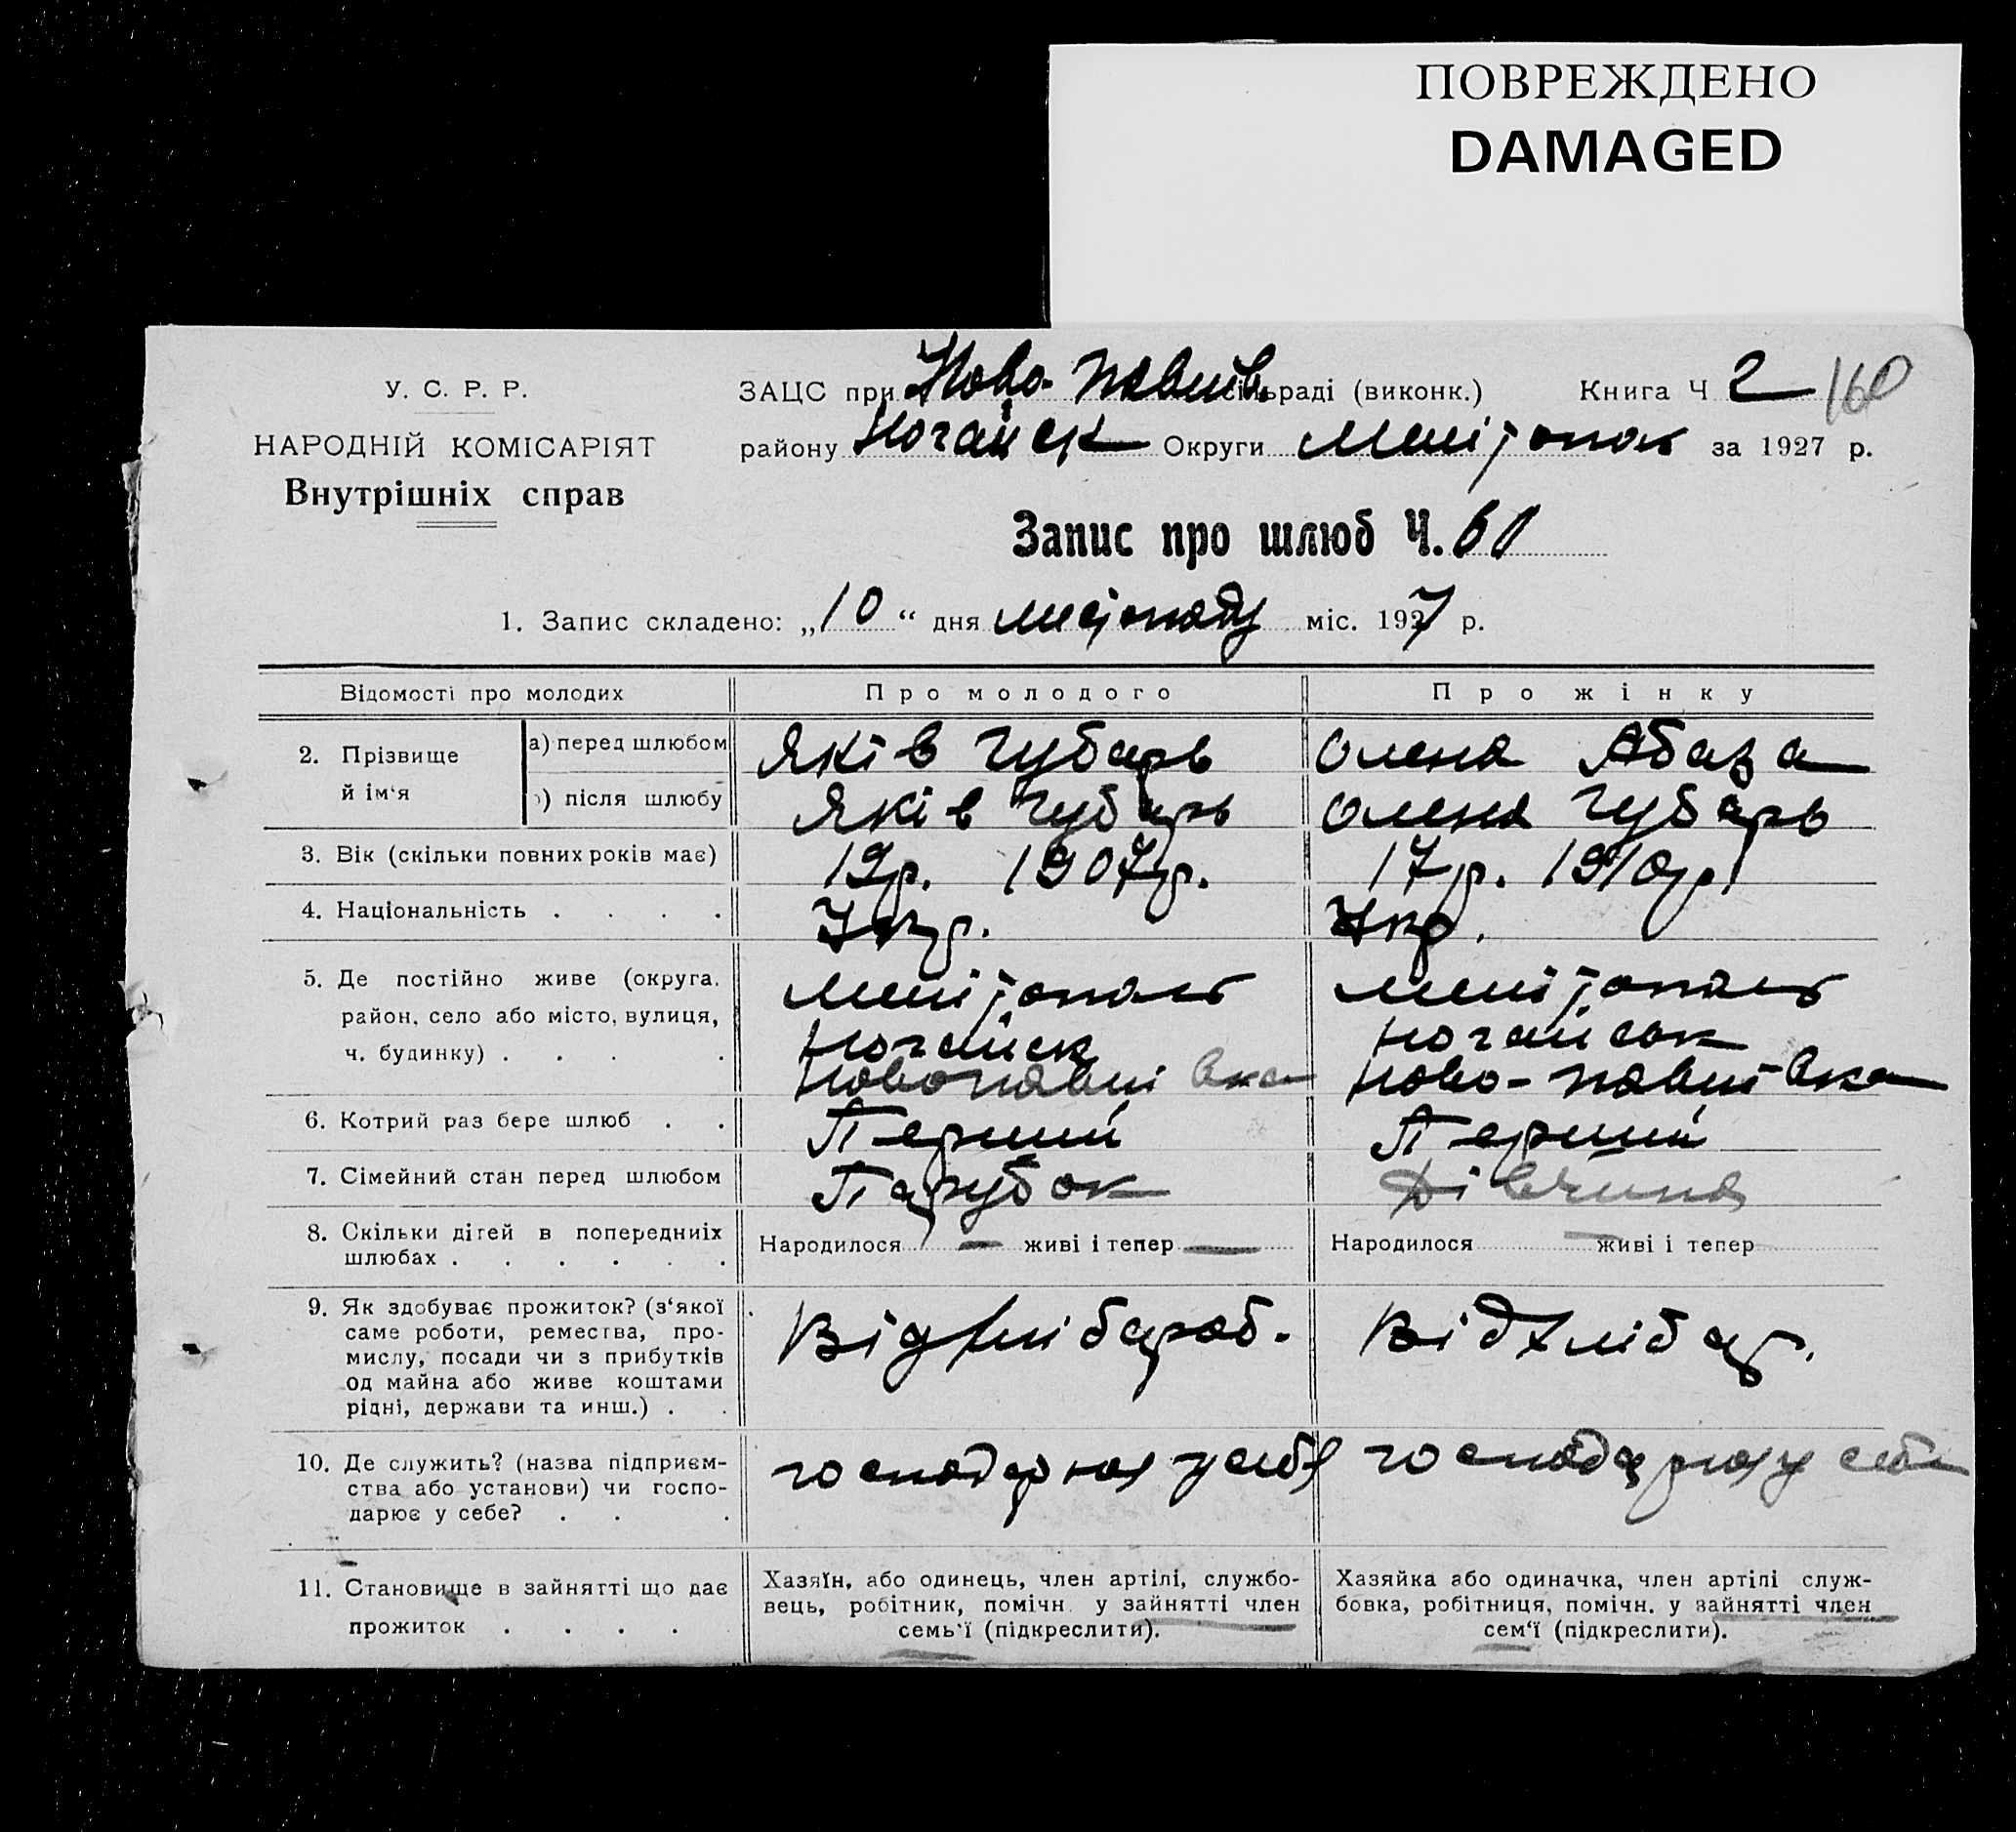 ПОВРЕЖДЕНО
DAMAGED
У. С. Р. Р.
НАРОДНІЙ КОМІСАРІЯТ
Внутрішніх справ
ЗАЦС при Ново-Павлів. сільраді (виконк.) Книга Ч 2 160
району Ногайск Округи Мелітополь за 1927 р.
Запис про шлюб Ч. 60
1. Запис складено: „10“ дня листопаду міс. 1927 р.
Відомості про молодих Про молодого Про жінку
2. Прізвище й ім‘я
а) перед шлюбом Яків Губарь Олена Абаза
б) після шлюбу Яків Губарь Олена Губарь
3. Вік (скільки повних років має) 19р. 1907р. 17р. 1910р.
4. Національність . . . . Укр. Укр.
5. Де постійно живе (округа, Мелітополь Мелітополь
район, село або місто, вулиця, Ногайск Ногайськ
ч. будинку) . . . . Новопавлівка Ново-Павлівка
6. Котрий раз бере шлюб . . Перший Перший
7. Сімейний стан перед шлюбом Парубок Дівчина
8. Скільки дітей в попередниіх Народилося — живі і тепер — Народилося — живі і тепер
шлюбах . . . . . .
9. Як здобуває прожиток? (з‘якої Від хлібароб. Від хлібар.
саме роботи, ремества, про-
мислу, посади чи з прибутків
од майна або живе коштами
рідні, держави та инш.) . .
10. Де служить? (назва підприєм- господарює у себе господарює у себе
ства або установи) чи госпо-
дарює у себе? . . .
11. Становище в зайнятті що дає
прожиток . . . .
Хазяїн, або одинець, член артілі, службо-
вець, робітник, помічн. у зайнятті член
семь‘ї (підкреслити).
Хазяйка або одиначка, член артілі служ-
бовка, робітниця, помічн. у зайнятті член
сем‘ї (підкреслити).